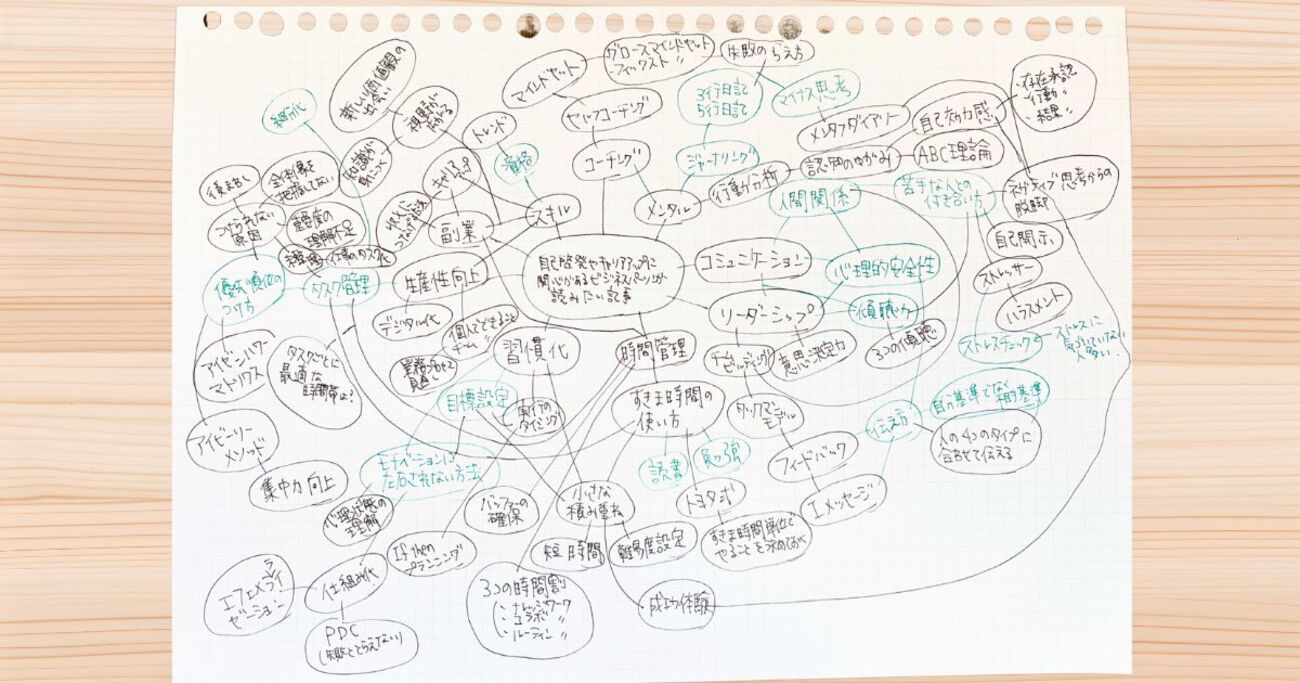 自己啓発やキャリアアップに
関心があるビジネスパーソンが
読みたい記事
コーチング
セルフコーチング
マインドセット
グロースマインドセット
フィックスト 〃
失敗の考え方
マイナス思考
3行日記
5行日記
ジャーナリング
メンタル
行動分析
認知のゆがみ
ABC理論
メンタルダイアリー
自己効力感
・存在承認
・行動 〃
・結果 〃
ネガティブ思考からの
脱却
コミュニケーション
人間関係
苦手な人との
付き合い方
自己開示
ストレッサー
ハラスメント
ストレスチェック
ストレスに
気づいていない
人多い。
心理的安全性
傾聴力
3つの傾聴
リーダーシップ
意思決定力
チームビルディング
タックマン
モデル
フィードバック
Iメッセージ
伝え方
人の4つのタイプに
合わせて伝える
時間管理
すきま時間の
使い方
読書
勉強
トヨタ式
すきま時間単位で
やることを決めておく
3つの時間割
・ナレッジワーク
・コラボ 〃
・ルーティン 〃
習慣化
実行の
タイミング
If then
プランニング
小さな
積み重ね
短時間
難易度設定
成功体験
バッファーの
確保
目標設定
モチベーションに
左右されない方法
心理状態の
理解
仕組み化
PDC
(失敗ととらえない)
生産性向上
デジタル化
個人でできること
チーム 〃
タスク管理
細分化
タスクごとに
最適な
時間帯は?
優先順位の
つけ方
つけられない
原因
後まわし
全体像を
把握してない
重要度の
理解不足
アイゼンハワー
マトリクス
アイビーリー
メソッド
集中力向上
スキル
資格
トレンド
副業
キャリアアップ
知識が
身につく
視野が
広がる
新しい価値観の
出会い